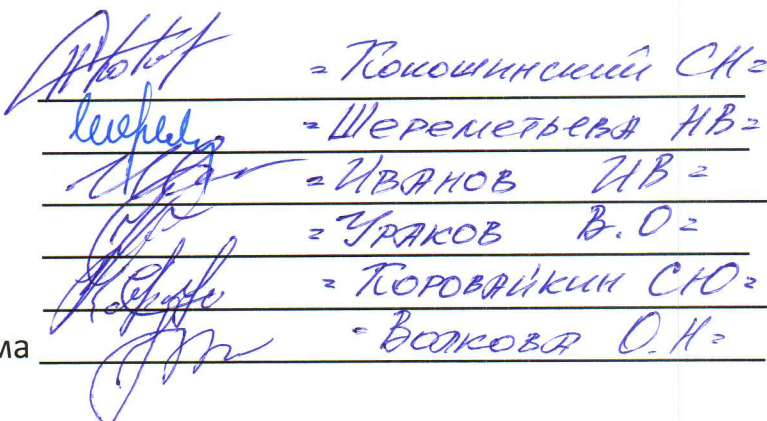 = Кокошинский СН =
= Шереметьева НВ =
= Иванов ИВ =
= Ураков В.О =
= Коровайкин СЮ =
ма - Волкова О.Н =